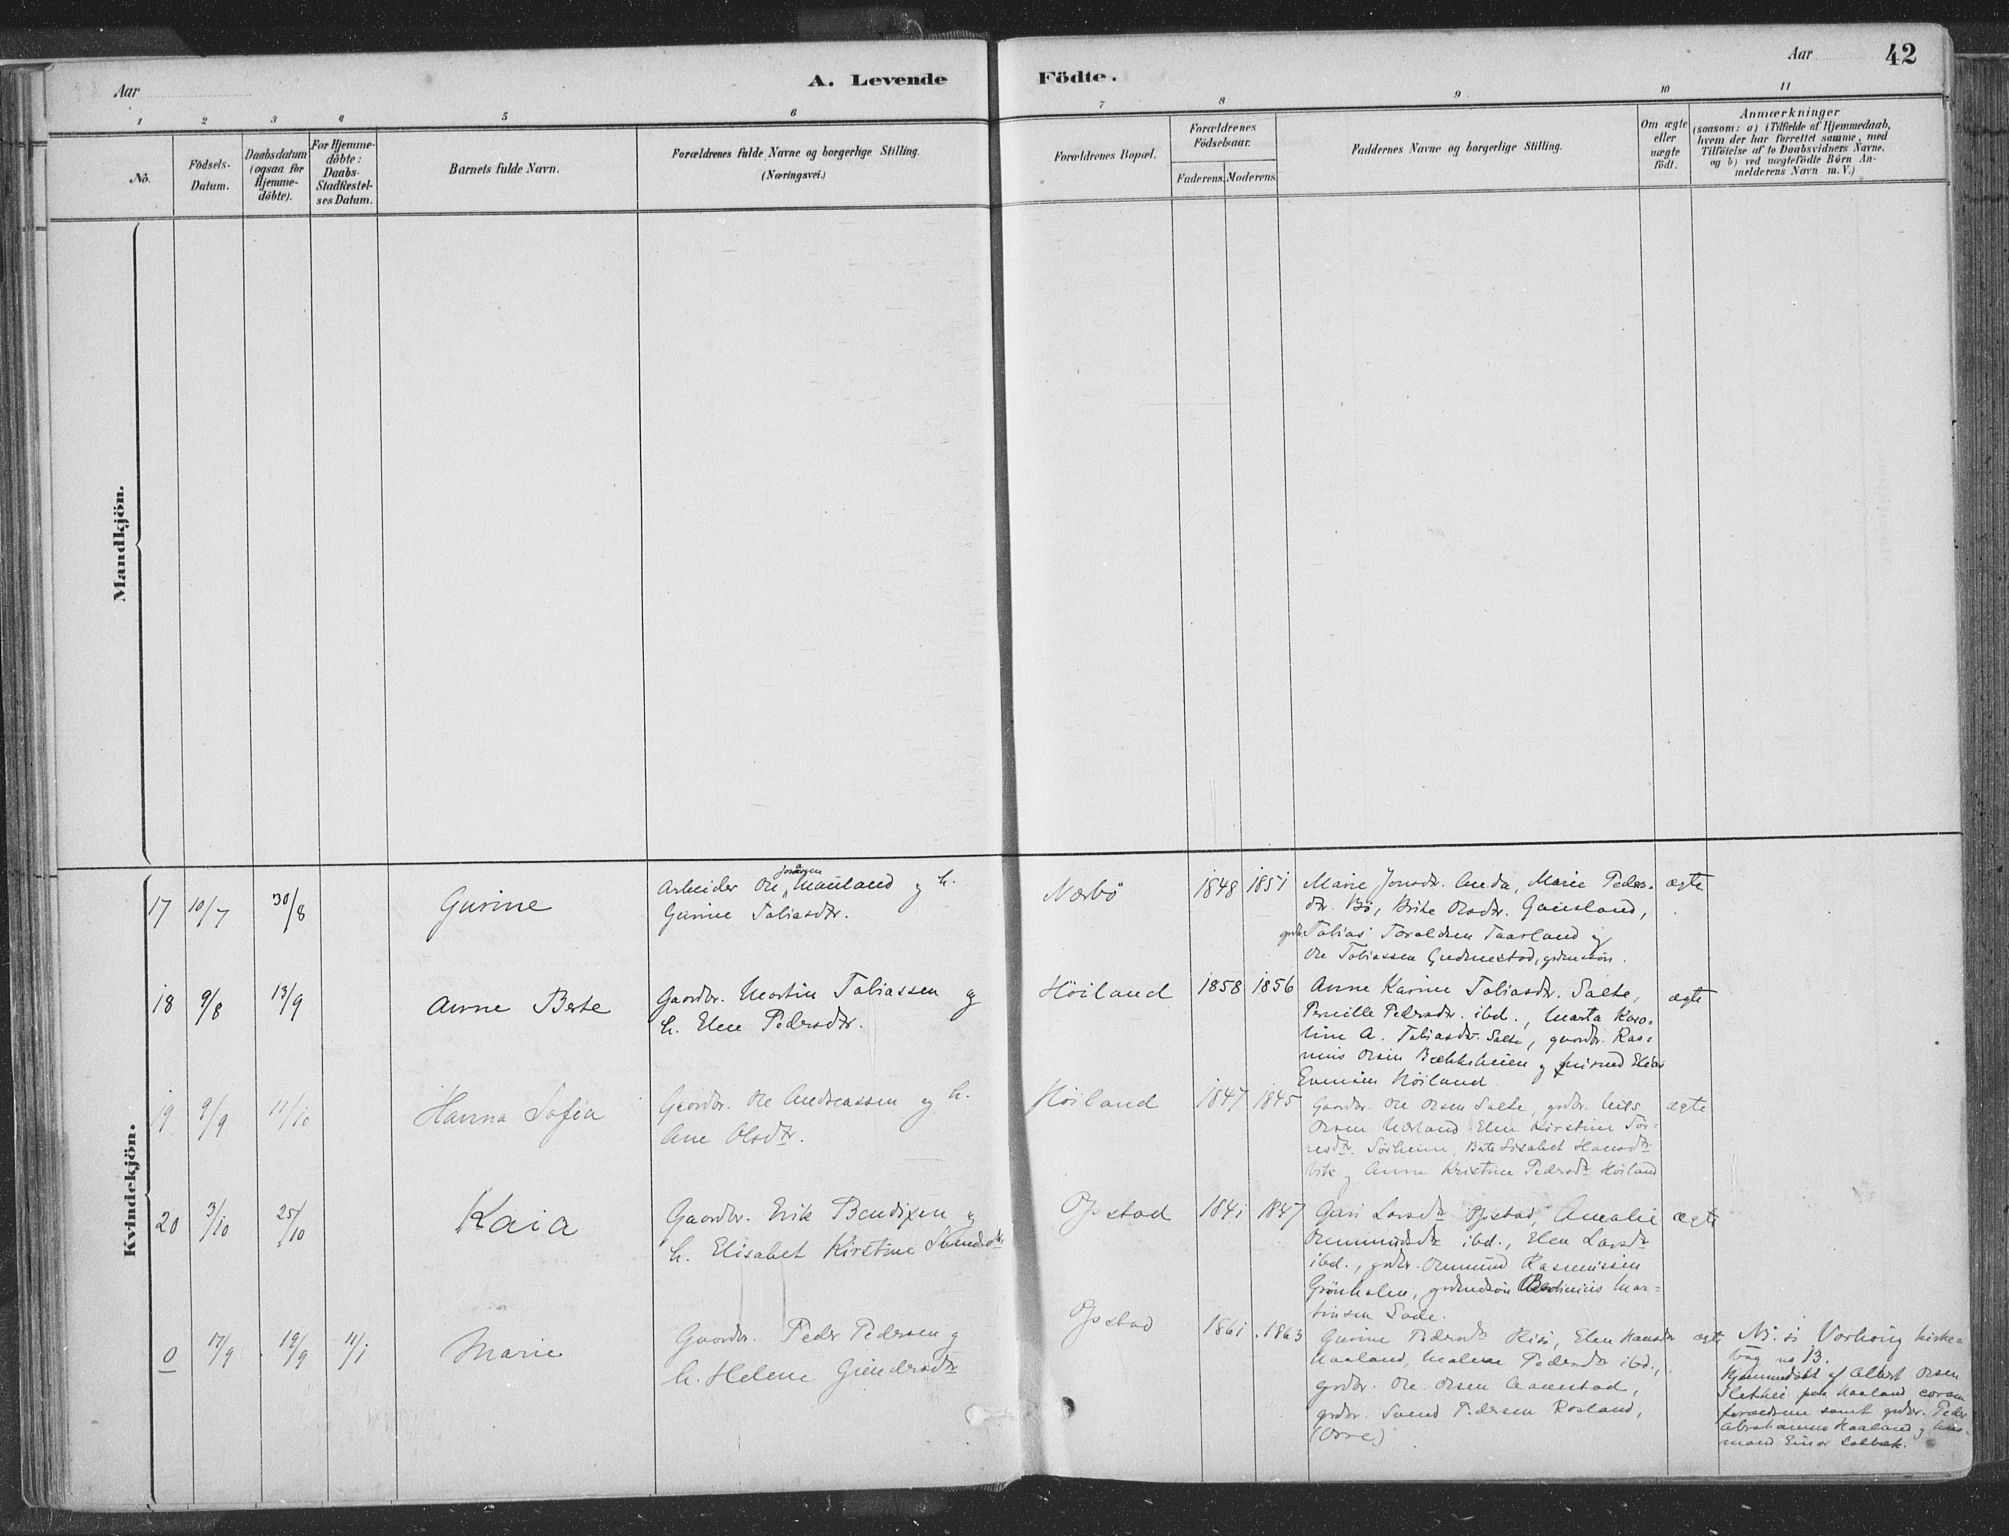 Aar
A. Levende
Födte.
Aar
42
1
2
3
4
5
6
7
8
9
10
11
No.
Födsels-
Datum.
Daabsdatum
(ogsaa for
Hjemme-
döbte).
For Hjemme-
döbte:
Daabs-
Stadfæstel-
ses Datum.
Barnets fulde Navn.
Forældrenes fulde Navne og borgerlige Stilling.
(Næringsvei.)
Forældrenes Bopæl.
Forældrenes
Födselsaar.
Faderens.
Moderens.
Faddernes Navne og borgerlige Stilling.
Om ægte
eller
uægte
født.
Anmærkninger
(saasom: a) i Tilfælde af Hjemmedaab,
hvem der har forrettet samme, med
Tilföielse af to Daabsvidners Navne.
og b) ved uægtefödte Börn An-
melderens Navn m. V.)
Mandkjön.
Kvindekjön.
17
10/7
30/8
Gurine
Arbeider Ole Mauland og h.
Gurine Tobiasdtr.
Nærbö
1848
1851
Marie Jonsdtr. Anda, Marie Peders-
dtr. Bö, Brite Olsdtr. Gausland,
grdbr. Tobias Taraldsen Taarland og
Ole Tobiassen Gudmestad, grdmdsön.
ægte
18
9/8
13/9
Anne Berte
Gaardbr. Martin Tobiassen og
h. Elen Pedersdtr.
Höiland
1858
1856
Anne Karine Tobiasdtr. Salte,
Pernille Pedersdtr. ibd., Marta Karo-
line A. Tobiasdtr. Salte, gaardbr. Ras-
mus Olsen Bækkeheien og
Höiland
ægte
19
9/9
11/10
Hanna Sofia
Gaardbr. Ole Andreassen og h.
Ane Olsdtr.
Höiland
1847
1845
Gaardbr. Ole Olsen Salte, grdbr. Nils
Olsen Nærland, Elen Kirstine Tör-
resdtr. Sörheim, Berte Lisabet Hansdtr.
og Anne Kristine Pedersdtr. Höiland
ægte
20
3/10
25/10
Kaia
Gaardbr. Erik Bendixen og
h. Elisabet Kirstine Svendsdtr.
Opstad
1841
1847
Guri Larsdtr. Opstad, Amalie
Ommundsdtr. ibd., Elen Larsdtr.
ibd., grdbr. Ommund Rasmussen
Grönholen, grdmdsön Bertinius Mar-
tinsen Lode.
ægte
0
17/9
19/9
11/1
Marie
Gaardbr. Peder Pedersen og
h. Helene Gjendsdtr.
Opstad
1861
1863
Gurine Pedersdtr. Elen Hansdtr.
Haaland, Malene Pedersdtr. ibd.,
grdbr. Ole Olsen Aanestad,
grdbr. Svend Pedersen Rosland,
(Orre)
ægte
N: i Varhoug kirke-
bog no 13.
Hjemmedöbt af Albert Olsen
paa Haaland coram
forældrene samt grdbr. Peder
Abrahamsen Haaland og hus-
mand Einar